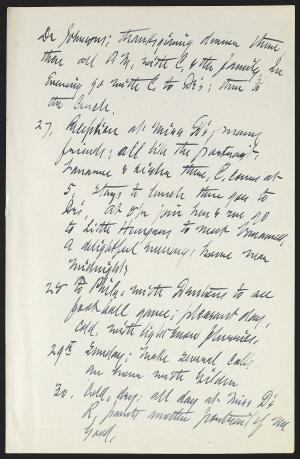 Dr Johnsons; thanksgiving dinner there,
there all P.M. with C, & the family. In
Evening go with C, to D's; then to
the Circle.
27, Reception at Miss D's; many
friends; all like the portrait,
there, C, comes at
5, stays to lunch then goes to
D's. At 8 P.M. join her & we go
to Little Hungary to meet
a delightful evening; home near
midnight
28 To Phila, with Davisons to see
foot ball game; pleasant day,
cold, with light snow flurries.
29th Sunday; make several calls,
with Gilder
30. Cold, dry; all day at Miss D's
R, paints another portrait of me
Good,